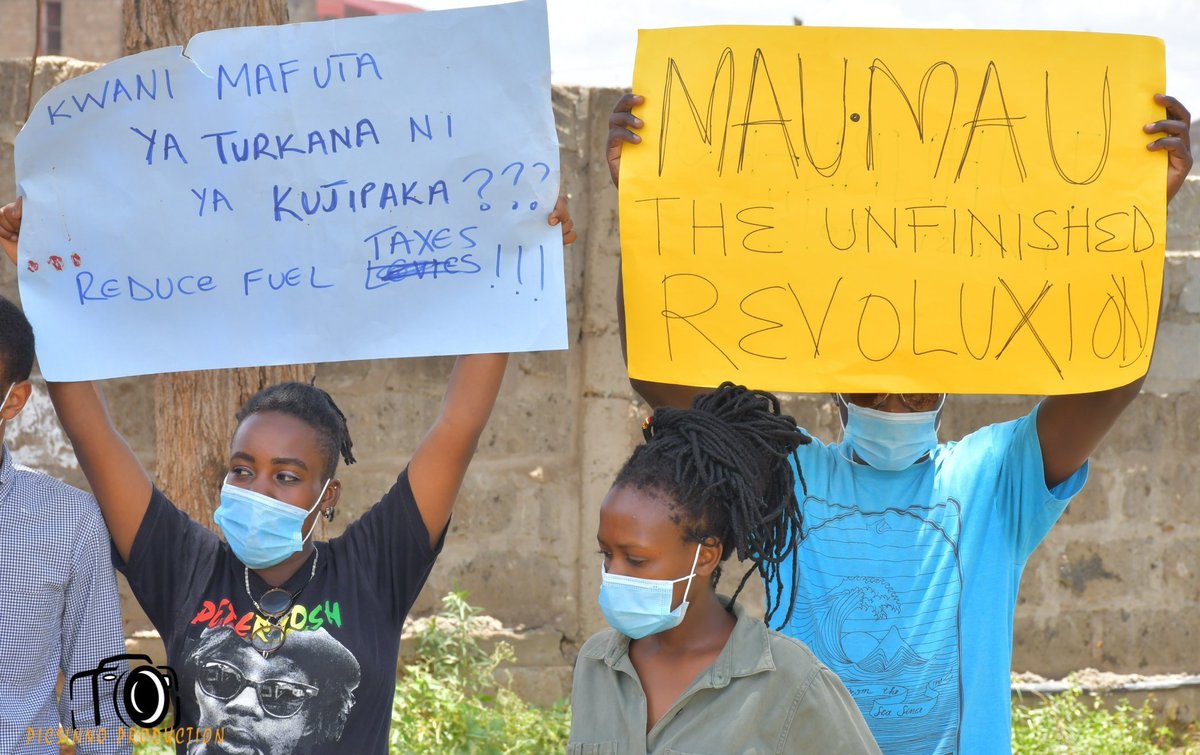 KWANI MAFUTA
YA TURKANA NI
YA KUJIPAKA ???
REDUCE FUEL TAXES !!!
MAU·MAU
THE UNFINISHED
REVOLUXION
PETER TOSH
PICUNNO PRODUCTION